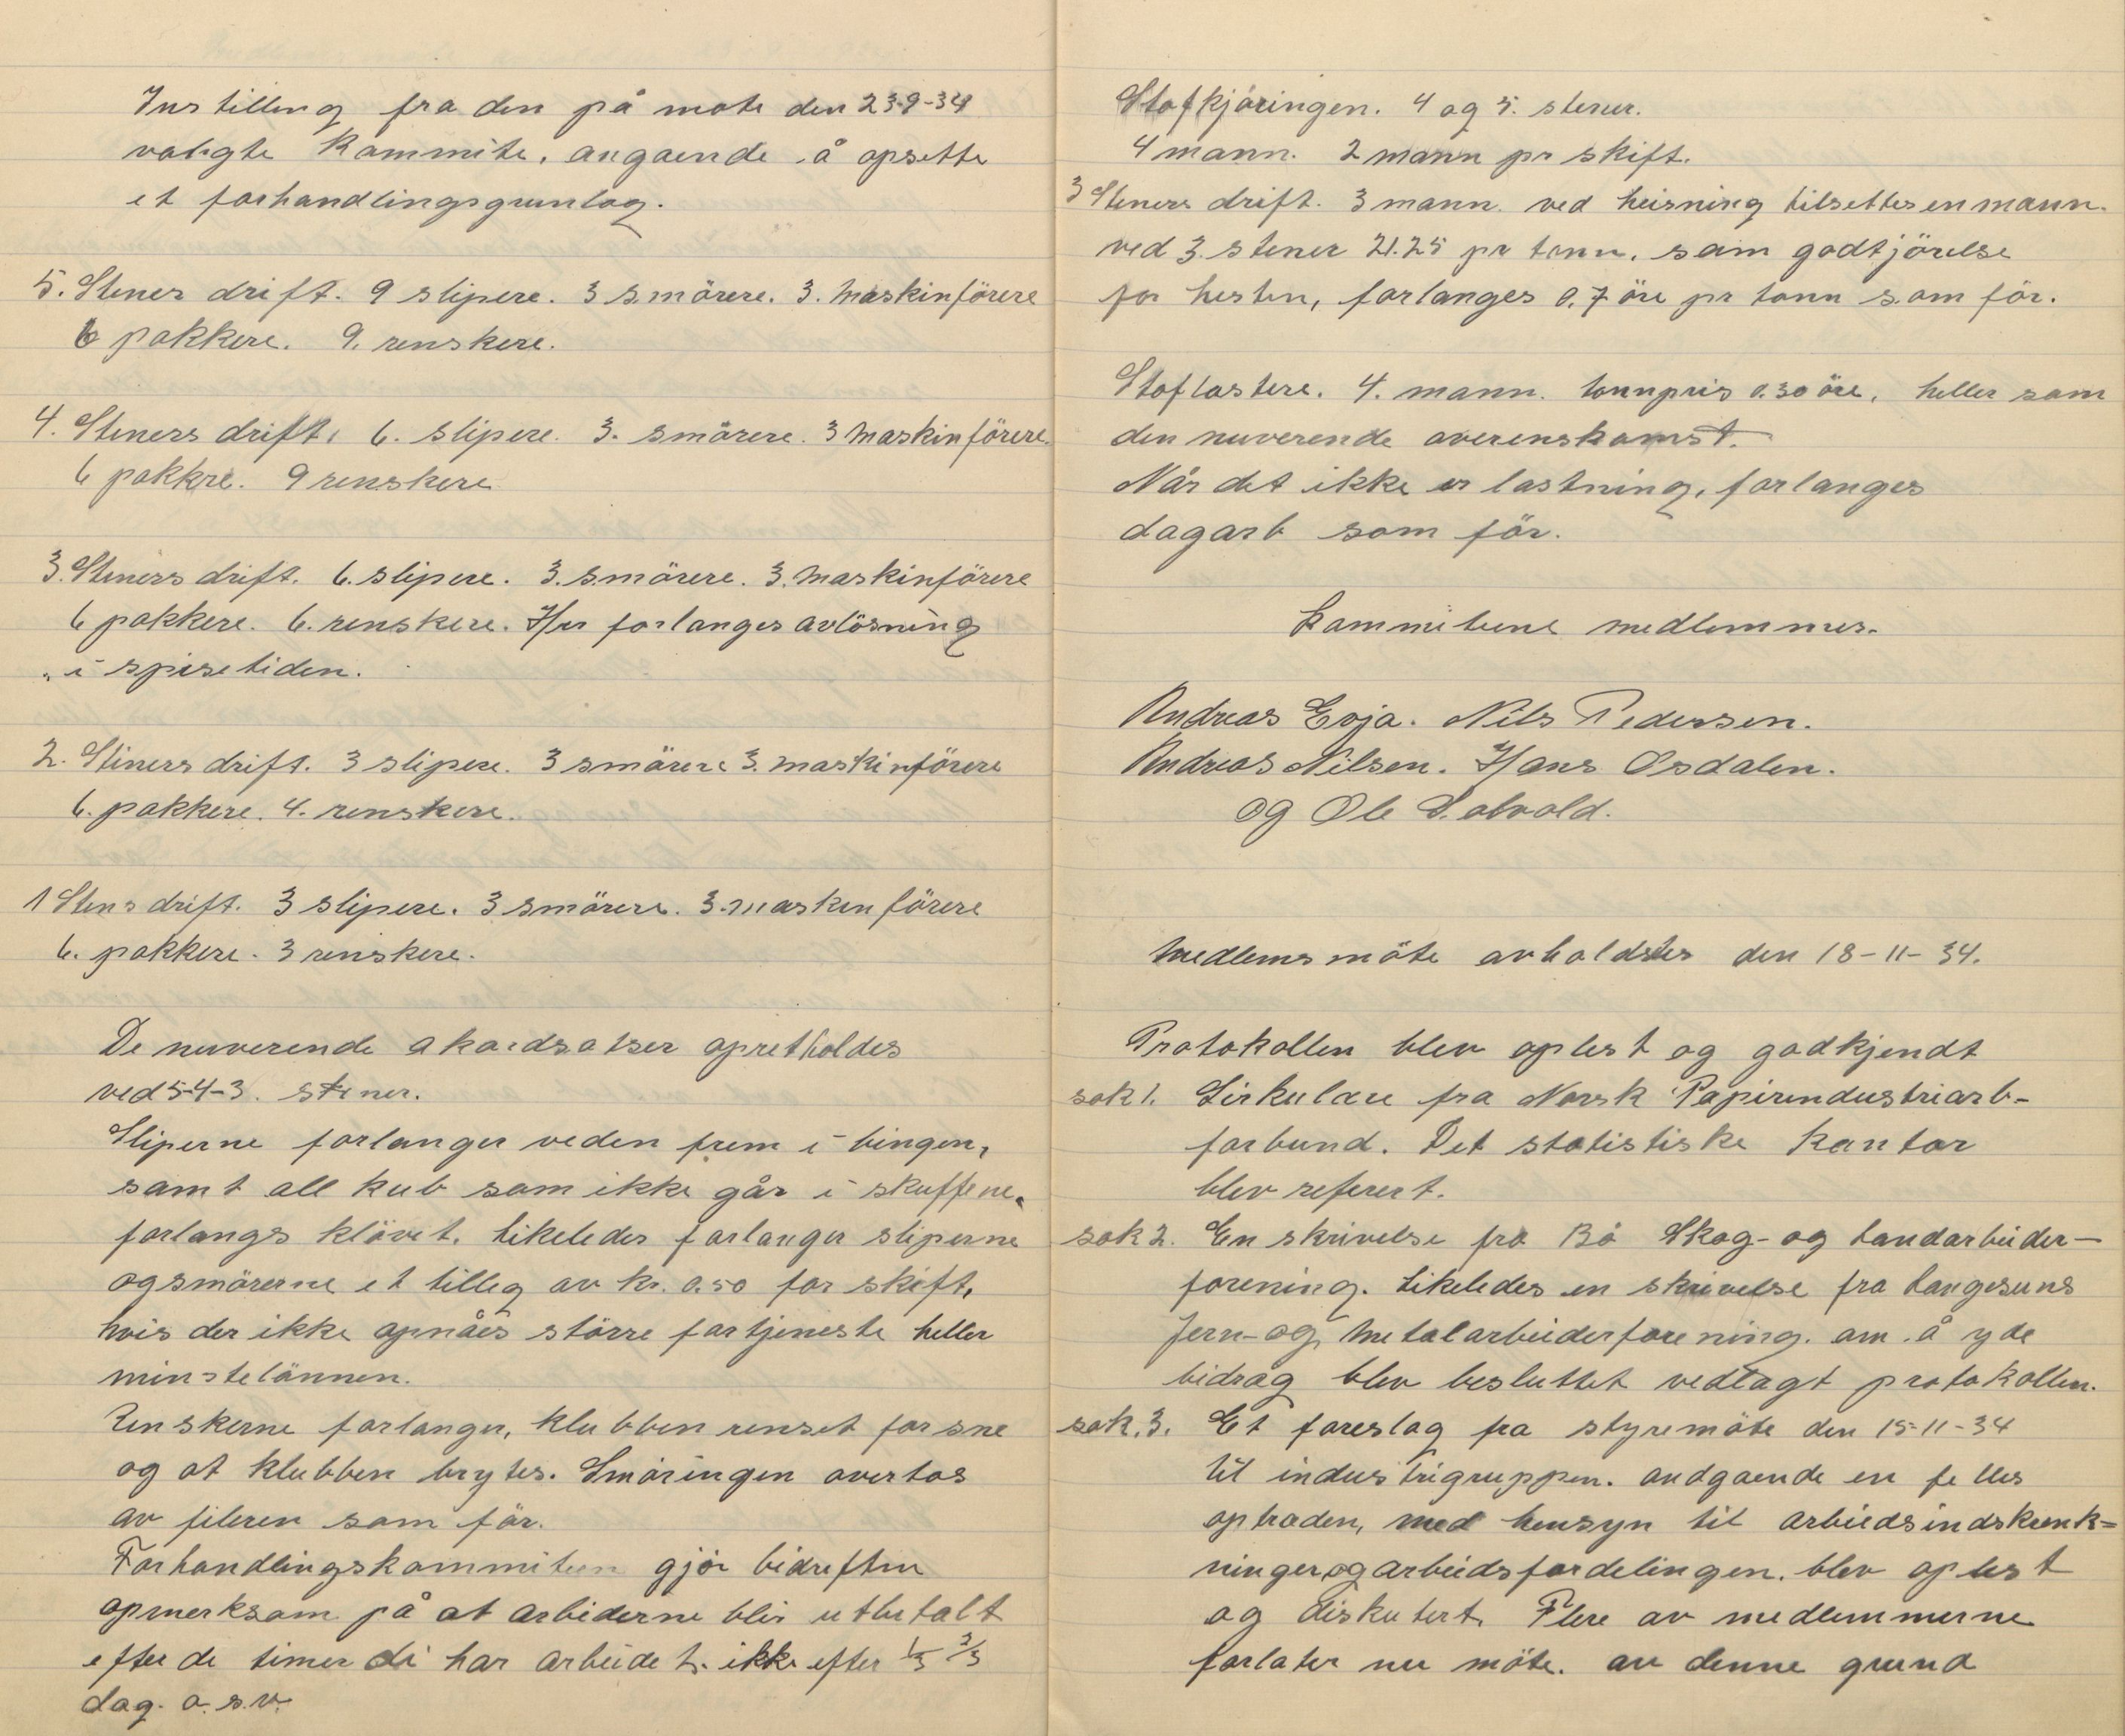 Instilling fra den på møte den 23-9-34
valigte Kommite. angaende å opsette
et forhandlingsgrunlag.
5. Steners drift. 9 slipere. 3 smörere. 3. Maskinförere
6 pakkere. 9. renskere.
4. Steners drift. 6. slipere. 3. smörere. 3 Maskinförere.
6 pakkre. 9 renskere
3. Steners drift. 6. slipere. 3. smörere. 3. Maskinförere
6 pakkere. 6. renskere. Her forlanges avlösning
i spisetiden.
2. Steners drift. 3 slipere. 3 smörere 3. maskinförere
6. pakkere. 4. renskere.
1 Stens drift. 3 slipere. 3 smörere. 3. maskenförere
6. pakkere. 3 renskere.
De nuverende akordsatser opretholdes
ved 5-4-3. stener.
Sliperne forlanger veden frem i bingen,
samt all kub som ikke går i skuffene.
forlangs klövet. Likeledes forlanger sliperne
og smörerne et tilleg av kr. 0.50 for skift.
hvis der ikke opnåes större fortjeneste heller
minstelönnen.
Renskerne forlanger, klubben renset for sne
og at klubben brytes. Smöringen overtas
av fileren som för.
Forhandlingskommiteen gjör bidriften
opmerksom på at arbiderne blir utbetalt
efter de timer di har arbeidet. ikke efter 1/3 2/3
dag. o.s.v.
Stofkjöringen. 4 og 5. stener.
4 mann. 2 mann pr skift.
3 Steners drift. 3 mann. ved heisning tilsettes en mann.
ved 3. stener 21.25 pr tonn. som godtjörelse
for hesten, forlanges 0.7 öre pr tonn som för.
Stoflastere. 4. mann. tonnpris 0.30 öre, heller som
den nuverende overenskomst.
Når det ikke er lastning, forlanges
dagarb som för.
Kommiteene medlemmer.
Andreas Evja. Nils Pedersen.
Andreas Nilsen. Hans Osdalen.
og Ole Solvold.
Medlemsmöte avholdstes den 18-11-34.
Protokollen blev oplest og godkjendt
sak 1. Sirkulære fra Norsk Papirindustriarb-
forbund. Det statistiske Kontor
blev referert.
sak 2. En skrivelse fra Bö Skog- og Landarbeider-
forening. Likeledes en skrivelse fra Langesuns
Jern- og Metalarbeiderforening. om å yde
bidrag blev besluttet vedlagt protokollen.
sak. 3. Et foreslag fra styremöte den 15-11-34
til industrigruppen. andgaende en felles
optræden, med hensyn til arbeidsindskrenk=
ninger og arbeidsfordelingen. blev oplest
og diskutert. Flere av medlemmerne
forlater nu möte. av denne grund